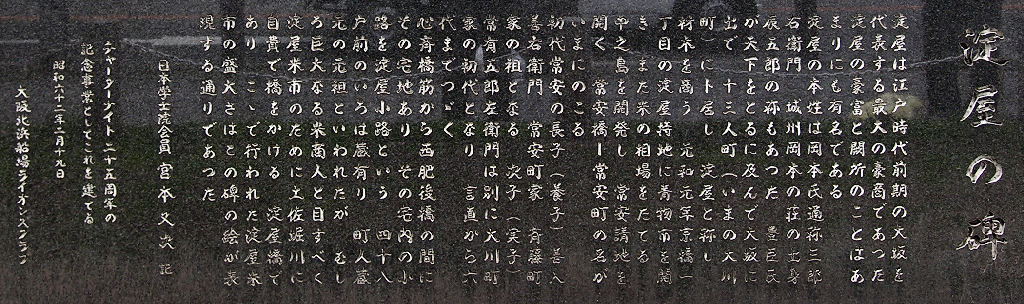 淀屋の碑
淀屋は江戸時代前期の大坂を
代表する最大の豪商であった
淀屋の豪富と闕所のことはあ
まりにも有名である
淀屋の本姓は岡本氏通称三郎
右衛門 城州岡本の荘の出身
辰五郎の称もあった 豊臣氏
が天下をとるに及んで大坂に
出で 十三人町(いまの大川
町)に卜居し 淀屋と称し
材木を商う 元和元年京橋一
丁目の淀屋持地に青物市を開
き また米の相場をたてる
中之島を開発し 常安請地を
開く 常安橋 常安町の名が
いまにのこる
初代常安の長子(養子)善入
善右衛門 常安町家 斉藤町
家の祖となる 次子(実子)
常有五郎左衛門は別に大川町
家の初代となり 言直から六
代までつづく
心斎橋筋から西肥後橋の間に
その宅地あり その宅内の小
路を淀屋小路という 四十八
戸前のいろは蔵有り 町人蔵
元の元祖といわれたが むし
ろ巨大なる米商人と目すべく
淀屋米市のために土佐堀川に
自費で橋をかける 淀屋橋で
あり こゝで行われた淀屋米
市の盛大さはこの碑の絵が表
現する通りであった
日本学士院会員 宮本又次 記
チャーターナイト二十五周年の
記念事業としてこれを建てる
昭和六十二年二月十九日
大阪北浜船場ライオンズクラブ